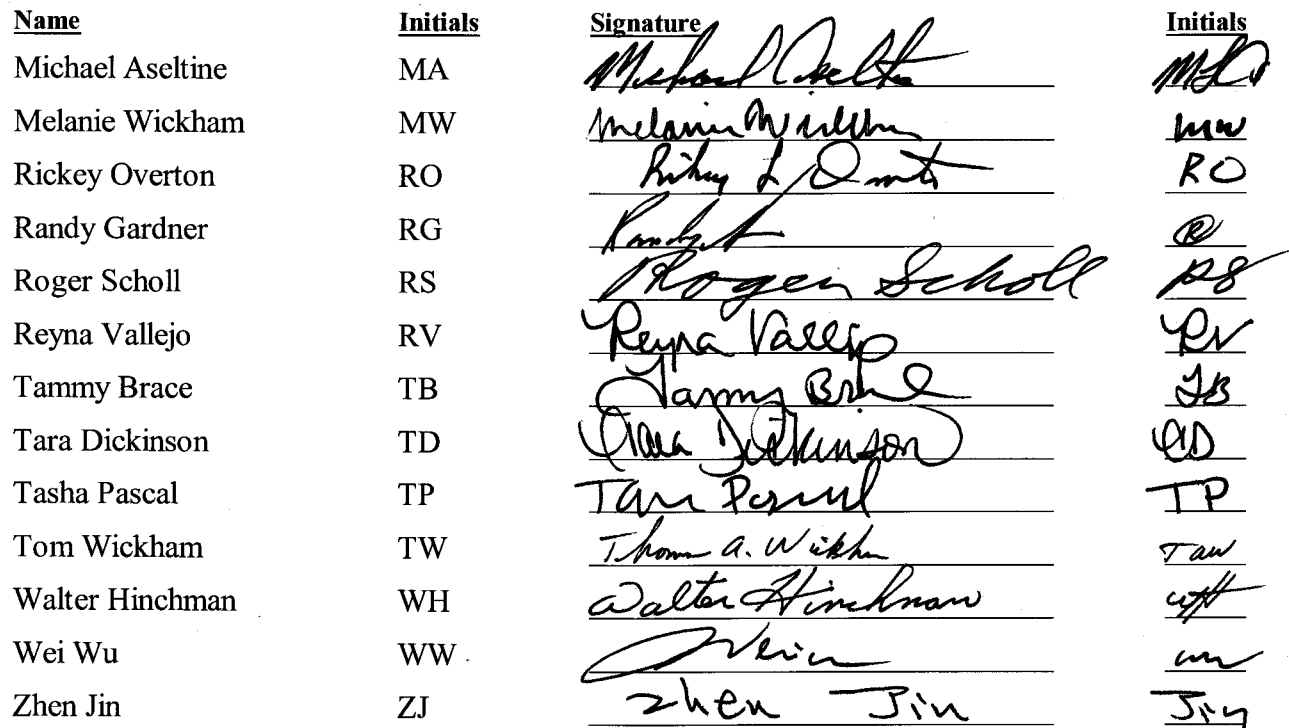 Name Initials Signature Initials
Michael Aseltine MA Michael Aseltine
Melanie Wickham MW Melanie Wickham mw
Rickey Overton RO Rickey L Overton RO
Randy Gardner RG Randy R
Roger Scholl RS Roger Scholl RS
Reyna Vallejo RV Reyna Vallejo RV
Tammy Brace TB Tammy Brace TB
Tara Dickinson TD Tara Dickinson TD
Tasha Pascal TP Pascal TP
Tom Wickham TW Thomas A. Wickham TAW
Walter Hinchman WH Walter Hinchman WH
Wei Wu WW Wei
Zhen Jin ZJ Zhen Jin Jin